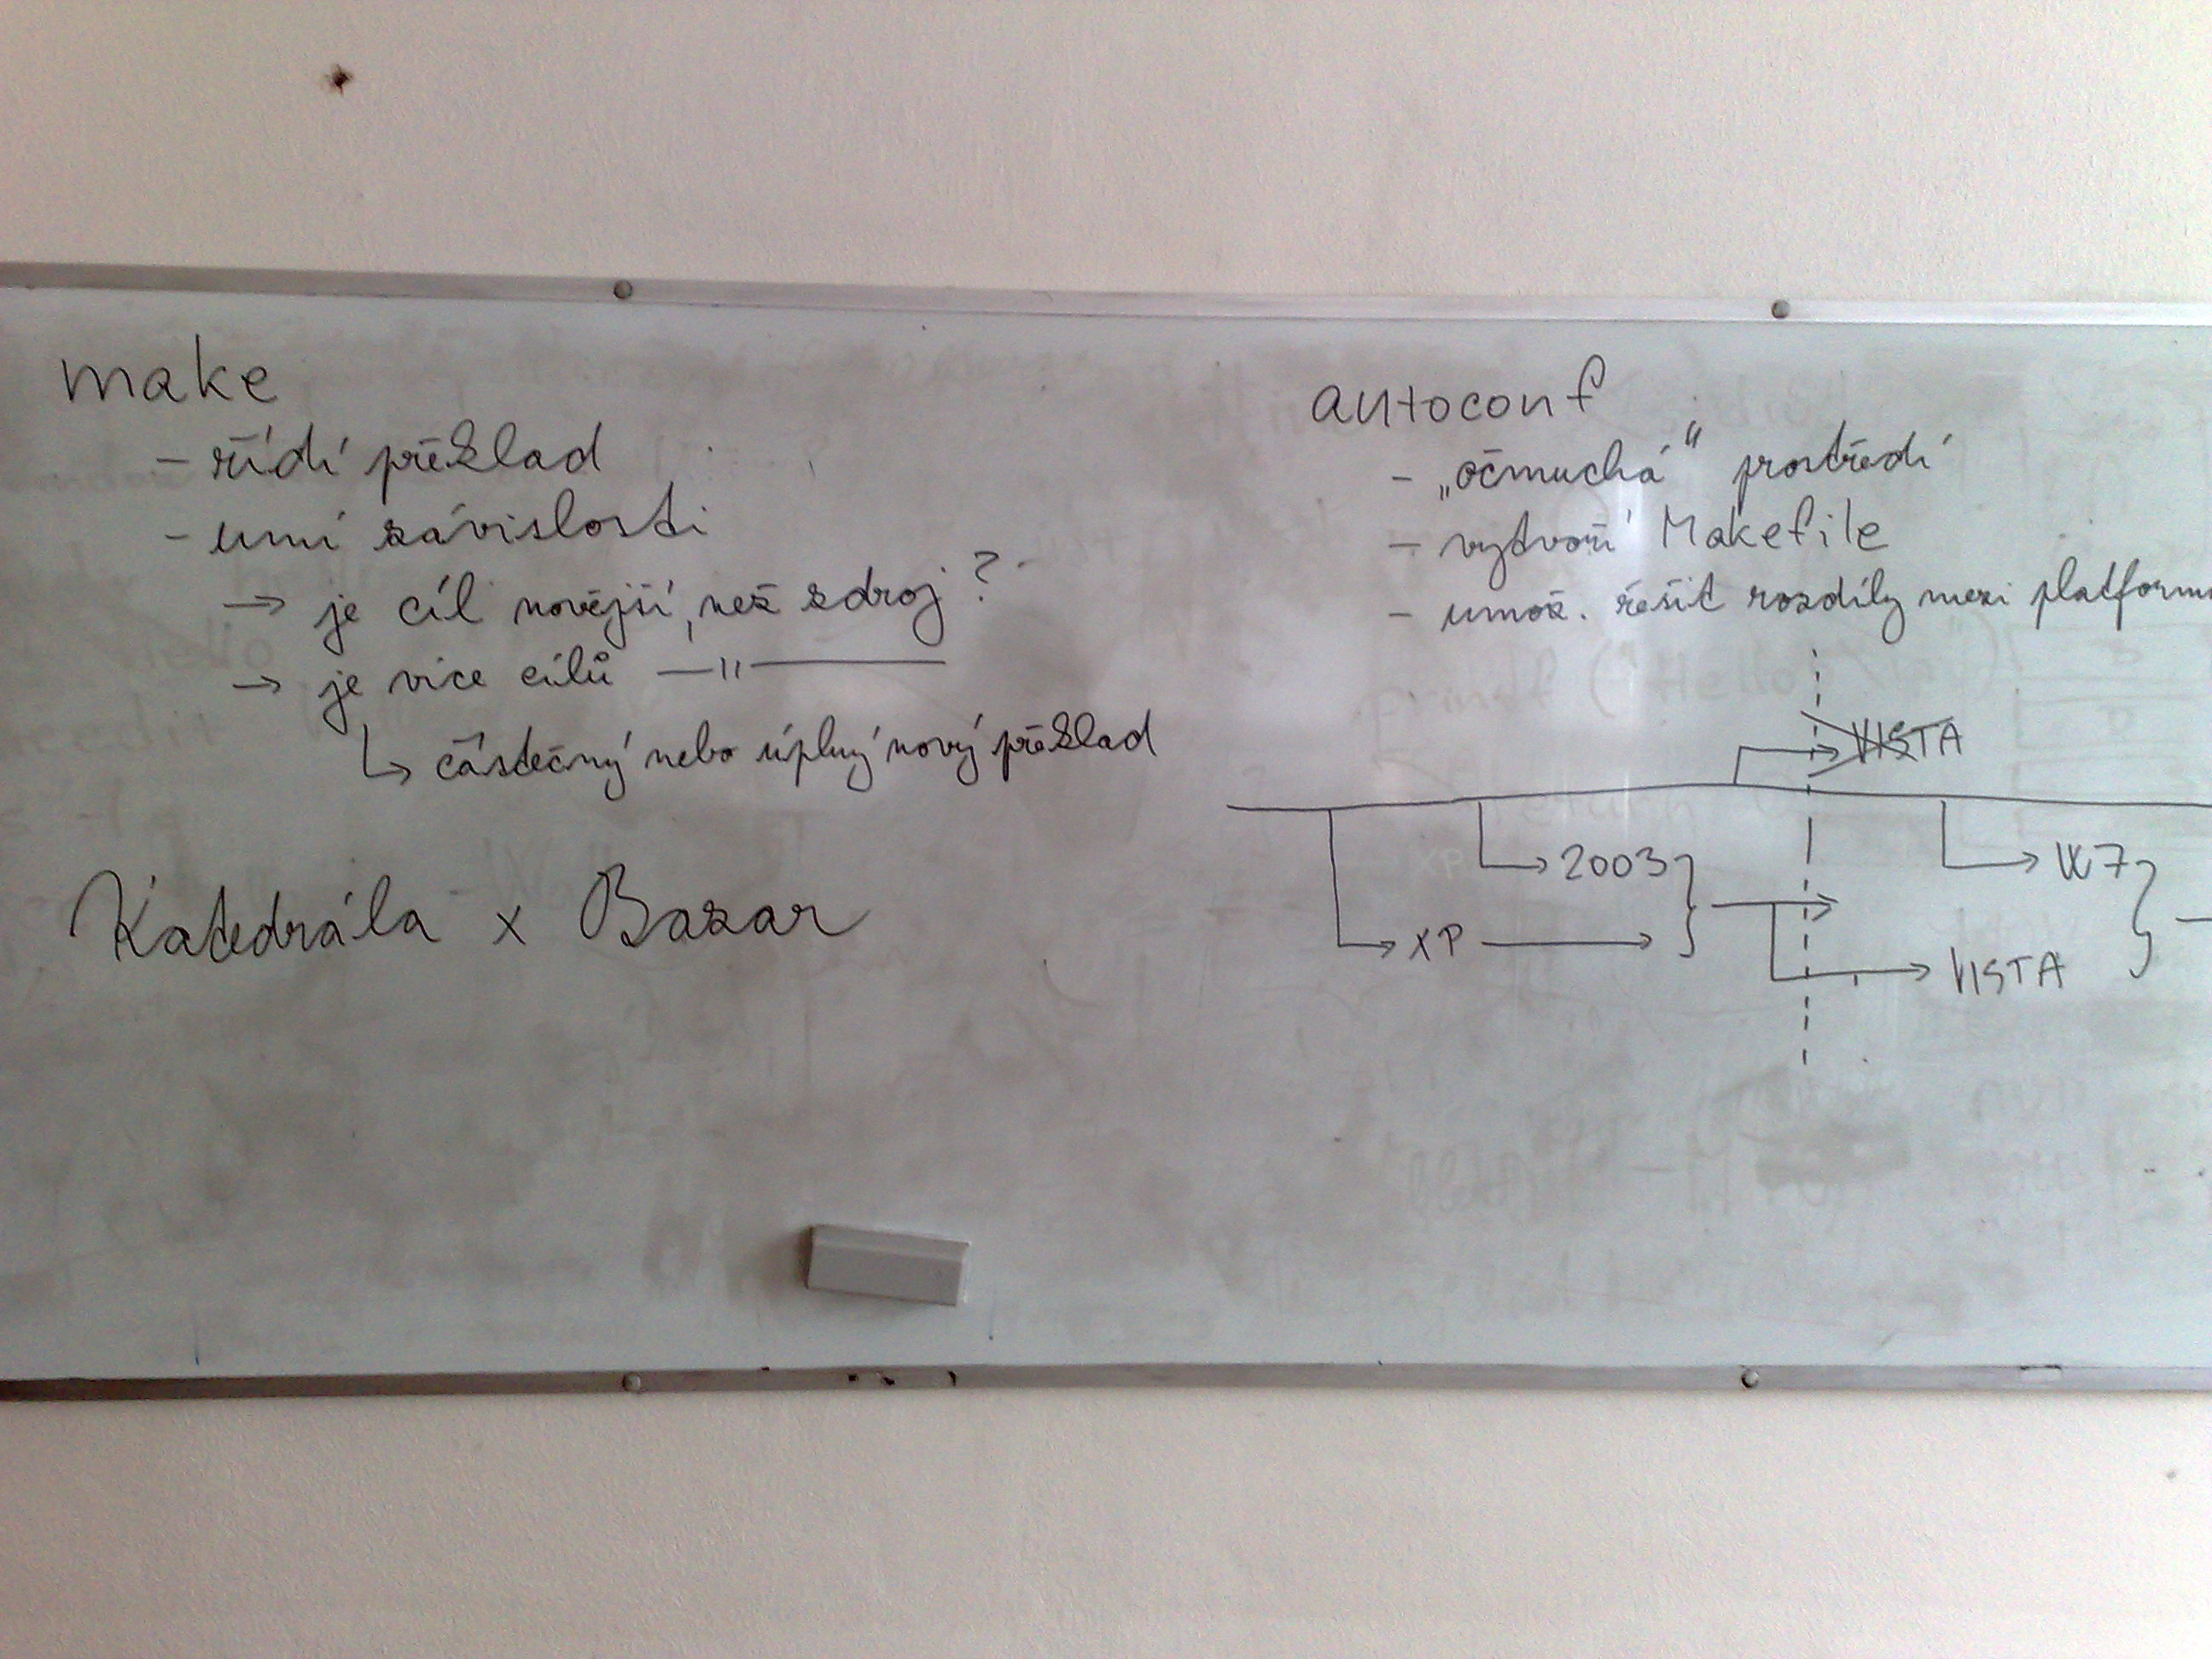 make
- řídí překlad
- umí závislosti
→ je cíl novější, než zdroj?
→ je více cílů —〃—
↳ částečný nebo úplný nový překlad
Katedrála x Bazar
autoconf
- „očmuchá“ prostředí
- vytvoří Makefile
- umož. řešit rozdíly mezi platform
VISTA
2003
W7
XP
VISTA